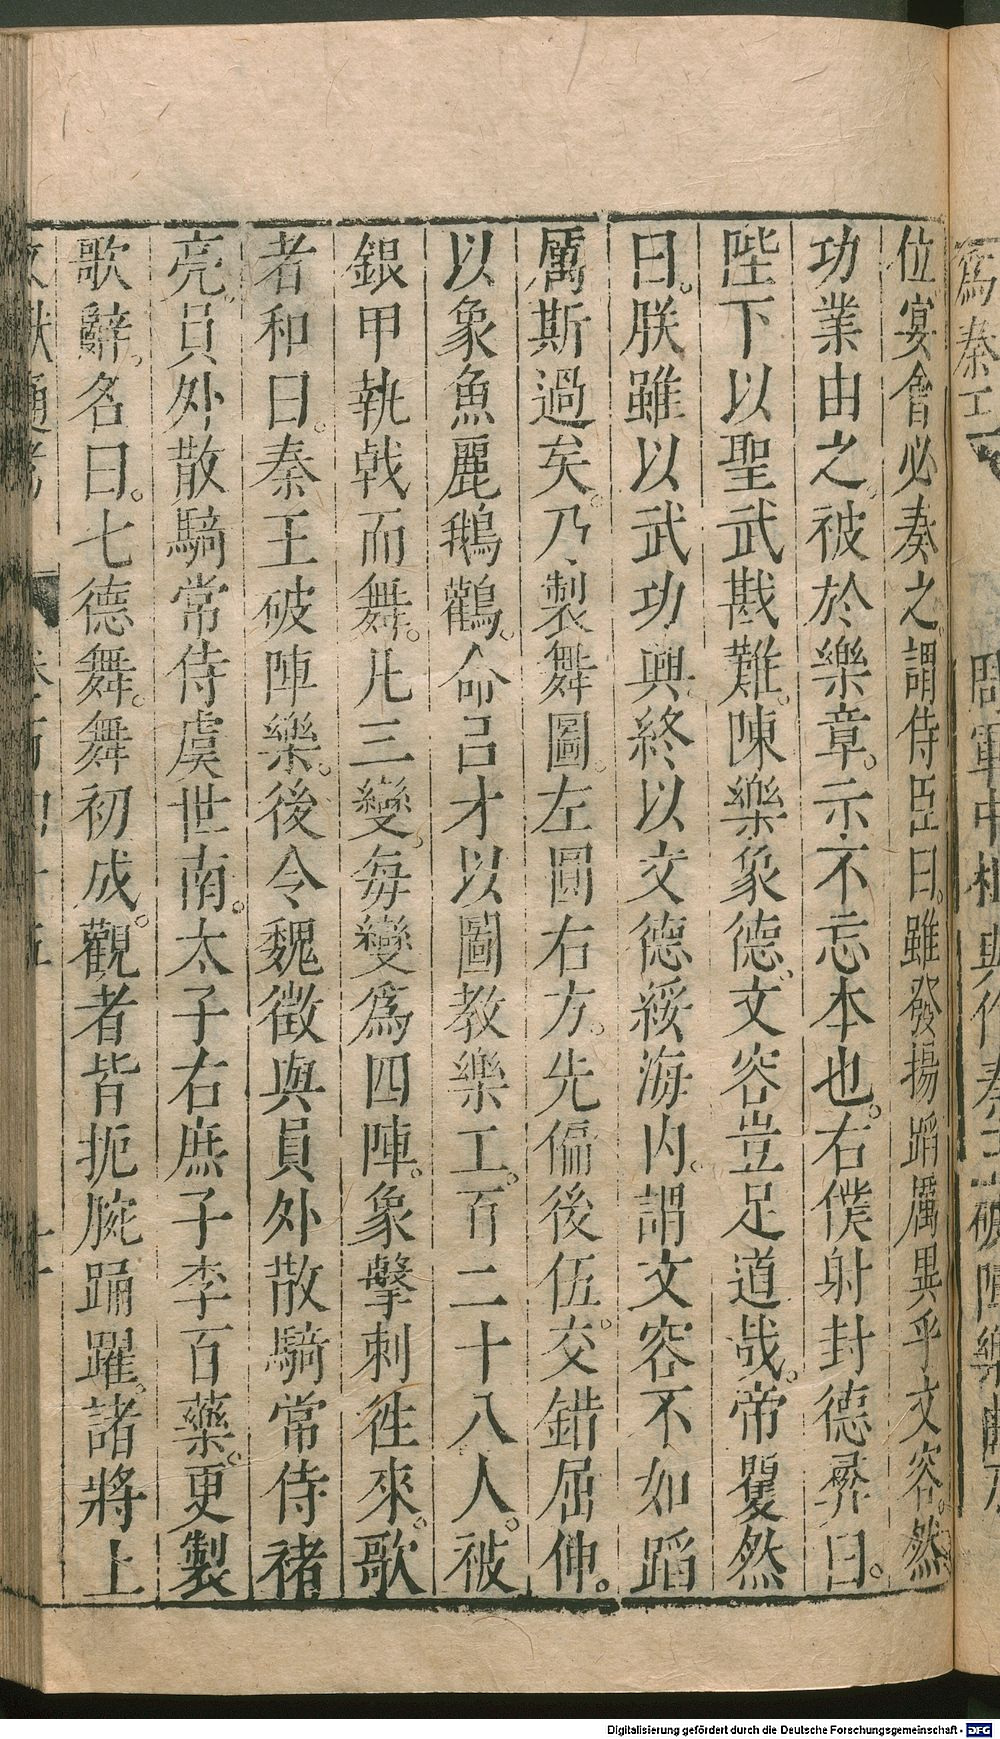 位宴會必奏之。謂侍臣曰。雖發揚蹈厲異乎文容。然
功業由之。被於樂章。示不忘本也。右僕射封德彝曰。
陛下以聖武戡難。陳樂象德。文容豈足道哉。帝矍然
曰。朕雖以武功興。終以文德綏海内。謂文容不如蹈
厲斯過矣。乃製舞圖。左圓右方。先偏後伍。交錯屈伸。
以象魚麗鵝鸛。命呂才以圖教樂工。百二十八人。被
銀甲執戟而舞。凡三變。每變爲四陣。象擊刺徃來。歌
者和曰。秦王破陣樂。後令魏徵與員外散騎常侍褚
亮。員外散騎常侍虞世南。太子右庶子李百藥。更製
歌辭。名曰。七德舞。舞初成。觀者皆扼腕踊躍。諸將上
Digitalisierung gefördert durch die Deutsche Forschungsgemeinschaft - DFG